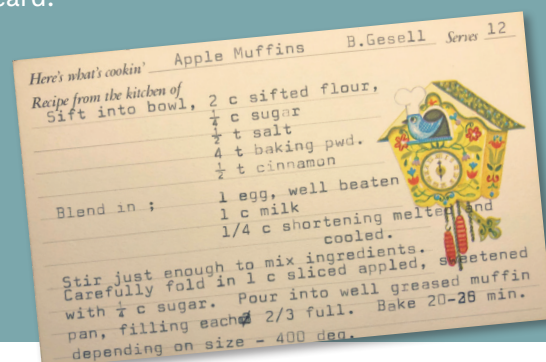 card.
Here's what's cookin' Apple Muffins B.Gesell Serves 12
Recipe from the kitchen of
Sift into bowl, 2 c sifted flour,
¼ c sugar
½ t salt
4 t baking pwd.
½ t cinnamon
Blend in ; 1 egg, well beaten
1 c milk
1/4 c shortening melted and
cooled.
Stir just enough to mix ingredients.
Carefully fold in 1 c sliced appled, sweetened
with ¼ c sugar. Pour into well greased muffin
pan, filling each 2/3 full. Bake 20-25 min.
depending on size - 400 deg.